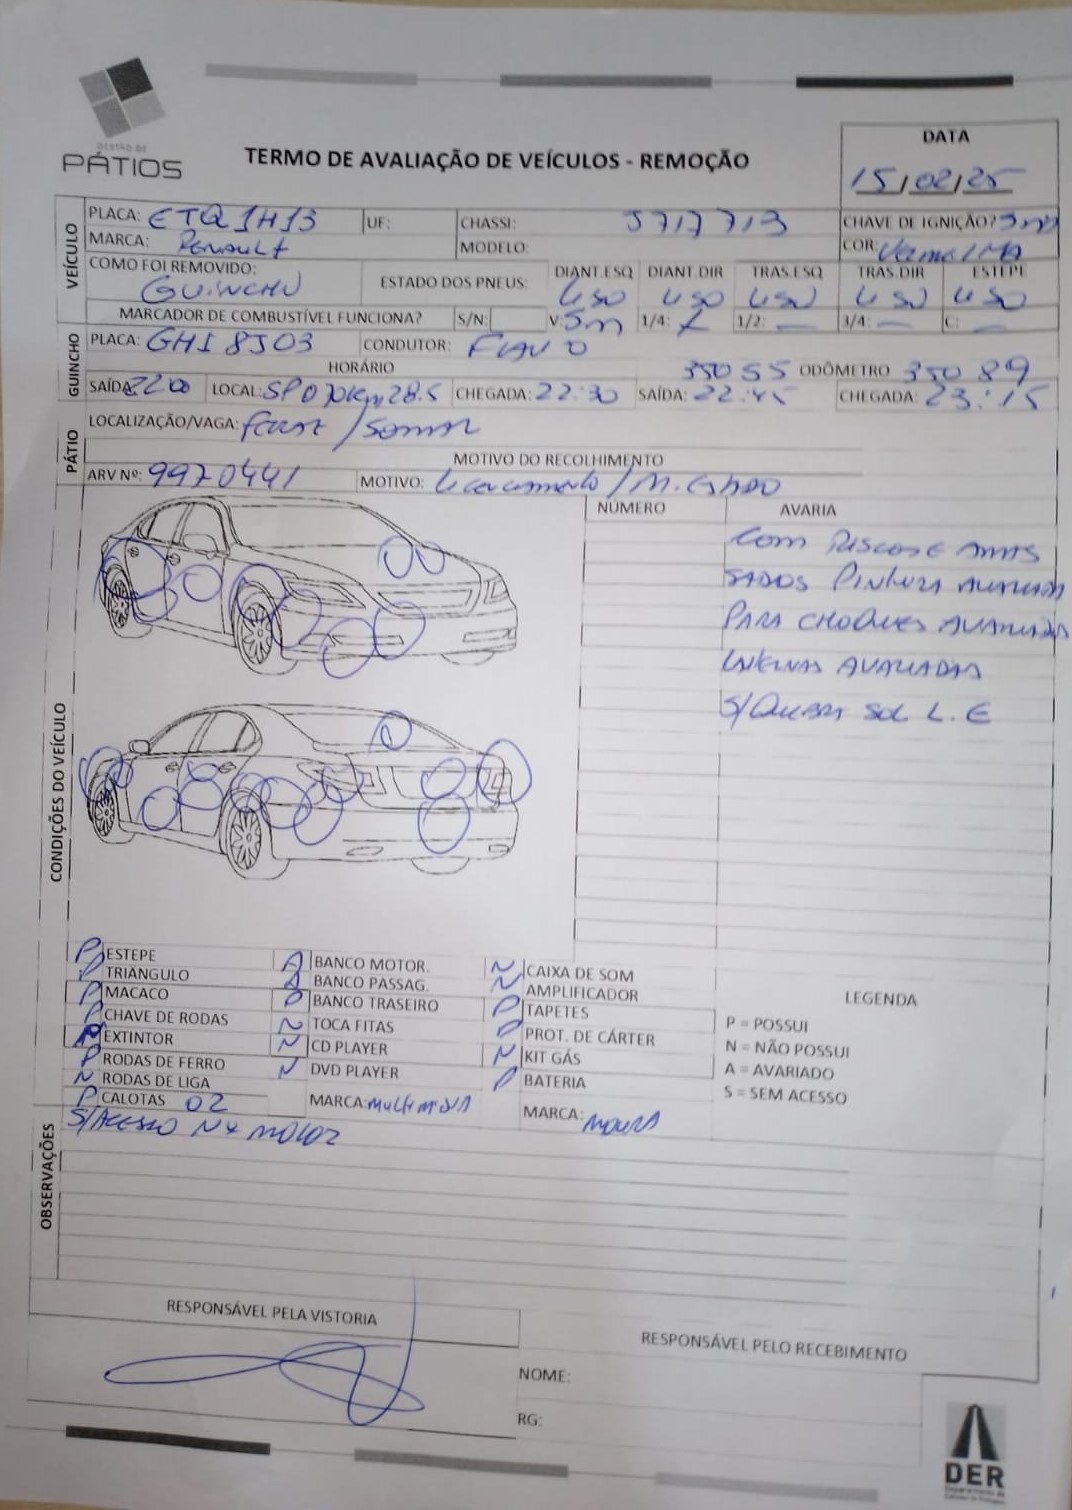 GESTÃO DE
PÁTIOS
TERMO DE AVALIAÇÃO DE VEÍCULOS - REMOÇÃO
DATA
15/02/25
VEÍCULO
PLACA: ETQ1H13 UF: CHASSI: J717713 CHAVE DE IGNIÇÃO? Sim
MARCA: Renault MODELO: COR: Vermelha
COMO FOI REMOVIDO: GUINCHO
ESTADO DOS PNEUS: DIANT.ESQ DIANT.DIR TRAS.ESQ TRAS.DIR ESTEPE
uso uso uso uso uso
MARCADOR DE COMBUSTÍVEL FUNCIONA? S/N: V: Sm 1/4: 1/2: — 3/4: — C: —
GUINCHO
PLACA: GHI8J03 CONDUTOR: FLAVIO
HORÁRIO 35055 ODÔMETRO 35089
SAÍDA: 22:00 LOCAL: SP070 Km 28.5 CHEGADA: 22:30 SAÍDA: 22:45 CHEGADA: 23:15
PÁTIO
LOCALIZAÇÃO/VAGA:
MOTIVO DO RECOLHIMENTO
ARV Nº: 9970441 MOTIVO: Licenciamento / M. Estado
CONDIÇÕES DO VEÍCULO
NÚMERO AVARIA
Com Riscos E AMAS
SADOS PINTURA AVARIADA
PARA CHOQUES AVARIADOS
LANTERNAS AVARIADAS
S/QUEBRA SOL L.E
P ESTEPE
P TRIÂNGULO
P MACACO
P CHAVE DE RODAS
EXTINTOR
P RODAS DE FERRO
N RODAS DE LIGA
P CALOTAS 02
A BANCO MOTOR.
A BANCO PASSAG.
P BANCO TRASEIRO
N TOCA FITAS
N CD PLAYER
N DVD PLAYER
MARCA: multimidia
N CAIXA DE SOM
N AMPLIFICADOR
P TAPETES
P PROT. DE CÁRTER
N KIT GÁS
P BATERIA
MARCA: MOURA
LEGENDA
P = POSSUI
N = NÃO POSSUI
A = AVARIADO
S = SEM ACESSO
OBSERVAÇÕES
S/ACESSO Nº MOTOR
RESPONSÁVEL PELA VISTORIA
RESPONSÁVEL PELO RECEBIMENTO
NOME:
RG:
DER